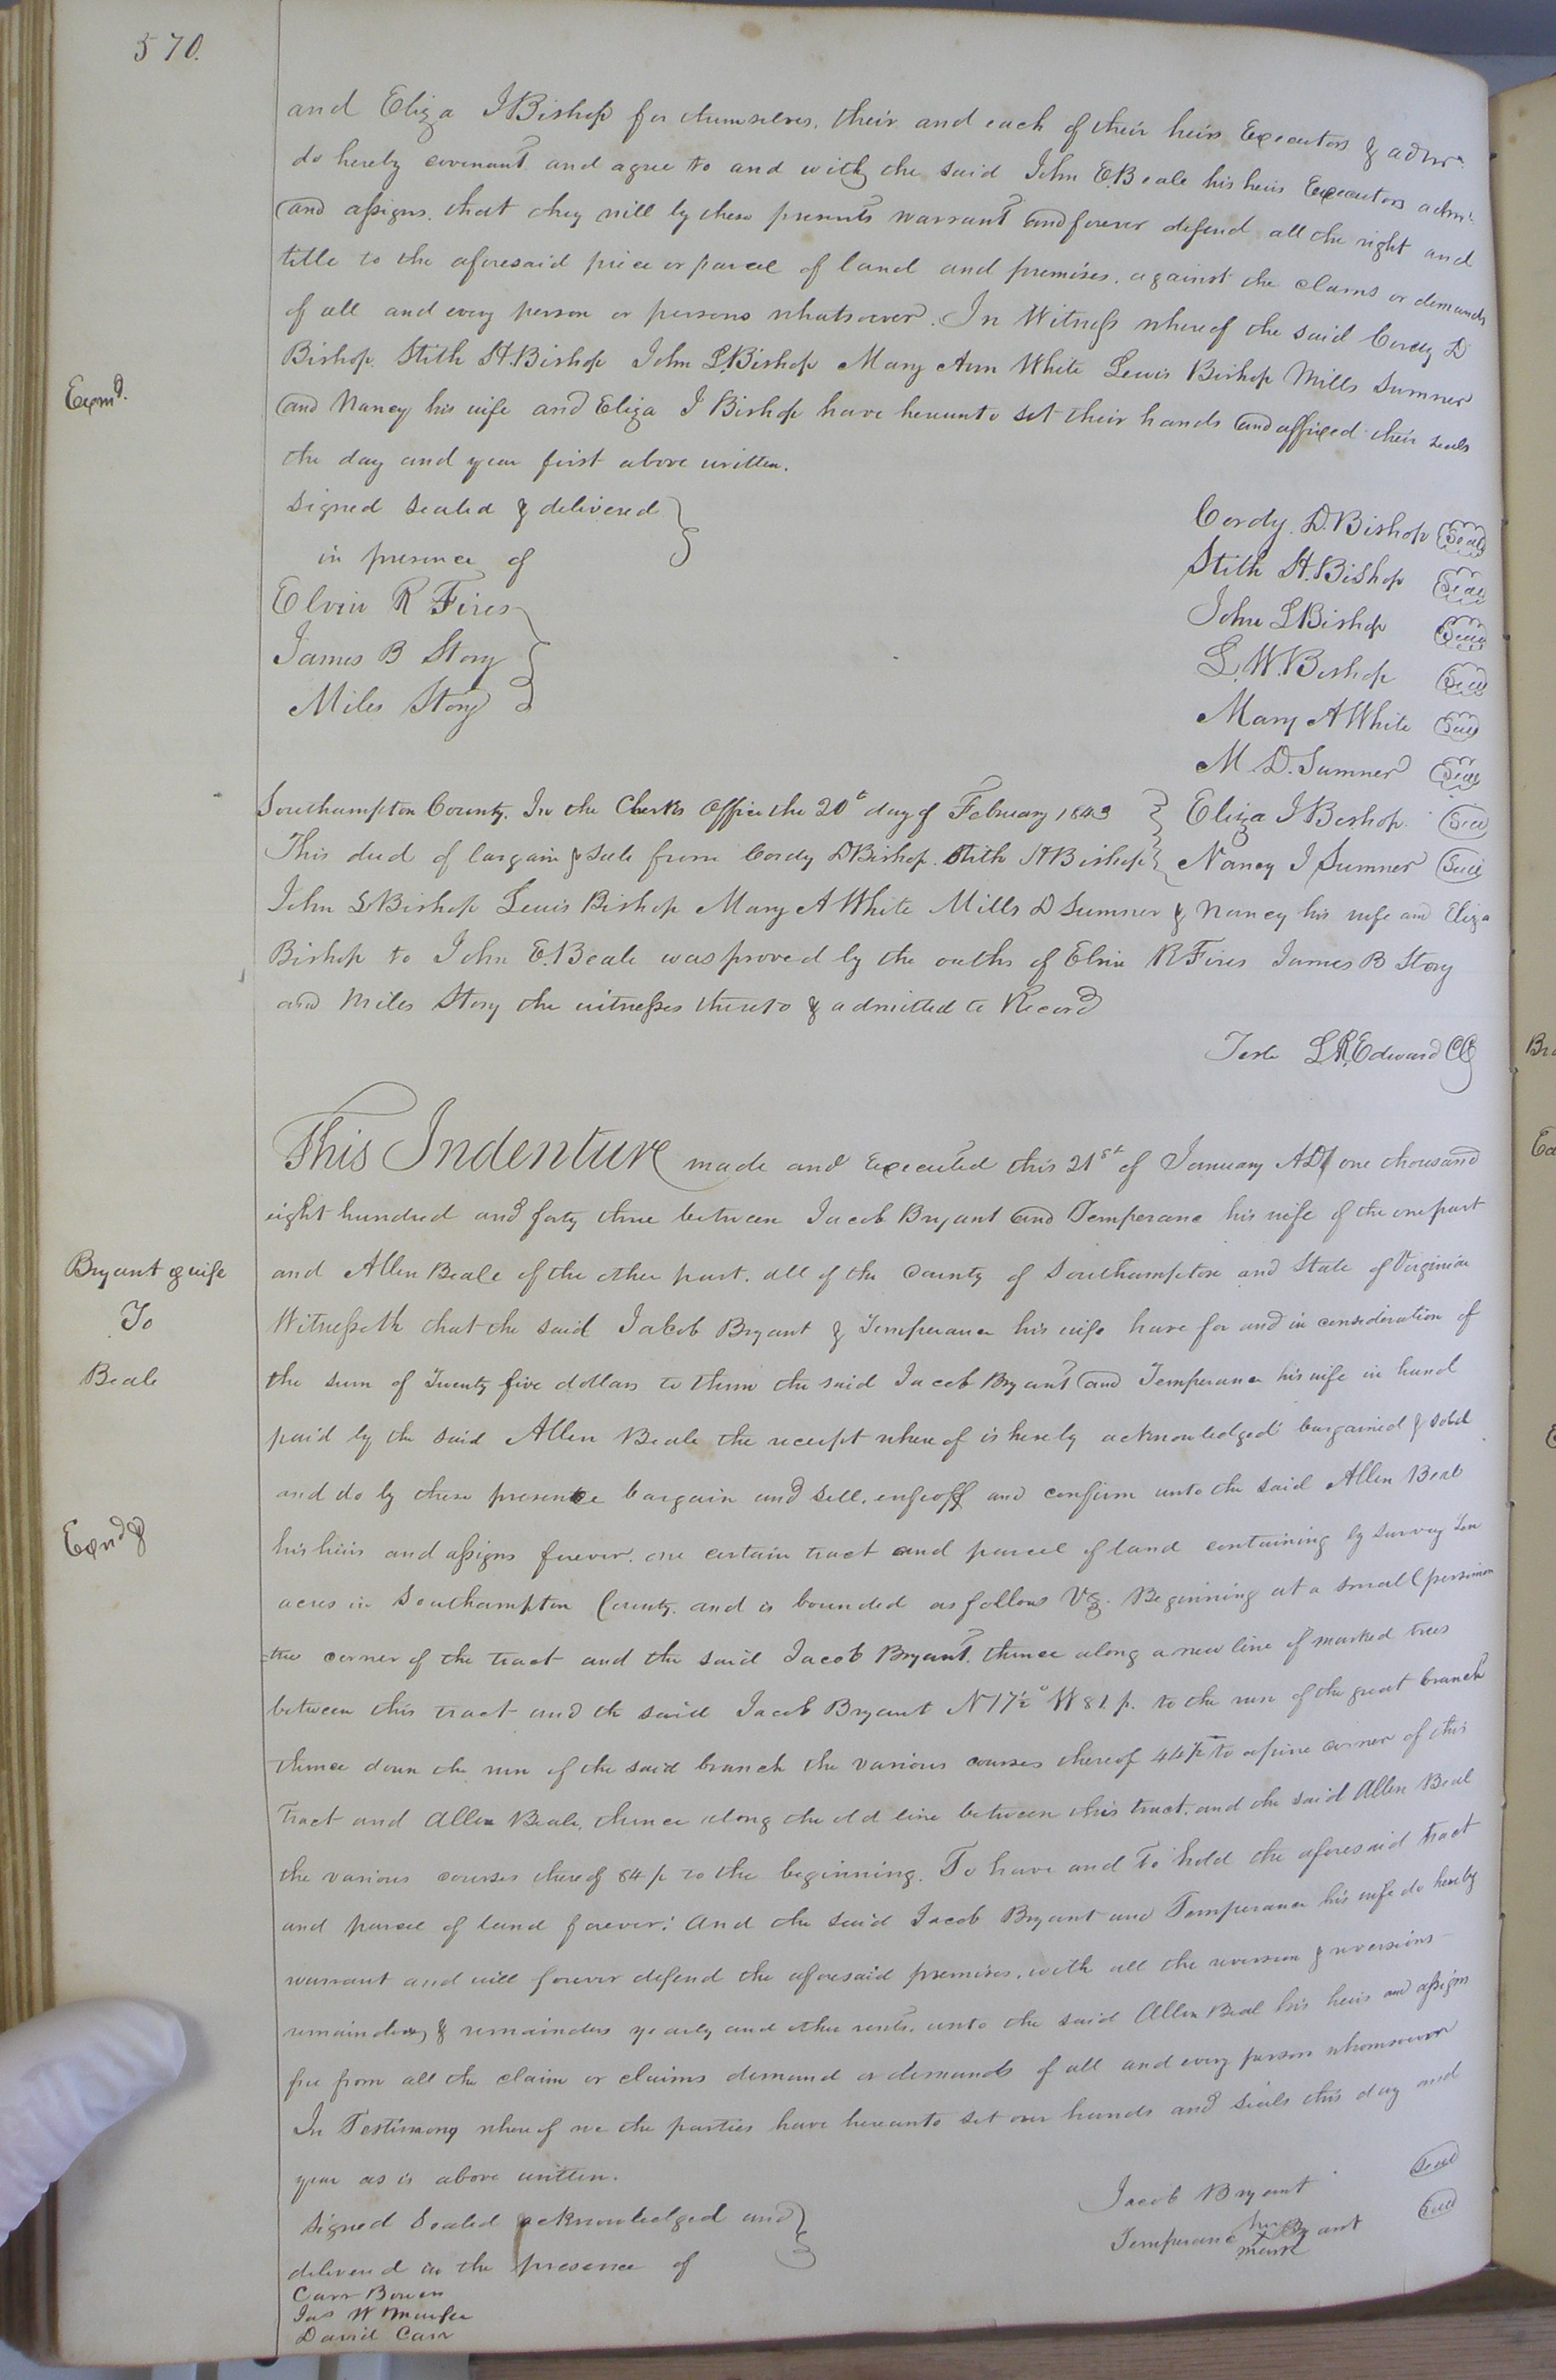 570.
and Eliza J Bishop for themselves, their and each of their heirs Executors & admrs
do hereby covenant and agree to and with the said John E. Beale his heirs Executors admrs
and assigns, that they will by these presents warrant and forever defend all the right and
title to the aforesaid piece or parcel of land and premises, against the claims or demands
of all and every person or persons whatsoever. In Witness whereof the said Cordy D
Bishop. Stith H. Bishop John L. Bishop Mary Ann White Lewis Bishop Mills Sumner
Exmd.
and Nancy his wife and Eliza J Bishop have hereunto set their hands and affixed their seals
the day and year first above written.
Signed Sealed & delivered
in presence of
Elvin R Fires
James B Story
Miles Story
Cordy. D. Bishop Seal
Stith H. Bishop Seal
John L Bishop Seal
L. W. Bishop Seal
Mary A White Seal
M. D. Sumner Seal
Eliza J Bishop. Seal
Nancy J Sumner Seal
Southampton County. In the Clerks Office the 20t day of February 1843
This deed of bargain & Sale from Cordy D Bishop. Stith H Bishop
John L Bishop Lewis Bishop Mary A White Mills D Sumner & Nancy his wife and Eliza
Bishop to John E. Beale was proved by the oaths of Elvin R Fires James B Story
and Miles Story the witnesses thereto & admitted to Record
Teste L. R. Edward CC
This Indenture made and Executed this 21st of January AD one thousand
eight hundred and forty three between Jacob Bryant and Temperance his wife of the one part
Bryant & wife
To
Beale
and Allen Beale of the other part. all of the County of Southampton and State of Virginia
Witnesseth that the said Jacob Bryant & Temperance his wife have for and in consideration of
the sum of Twenty five dollars to them the said Jacob Bryant and Temperance his wife in hand
paid by the said Allen Beale the receipt whereof is hereby acknowledged bargained & sold
and do by these presents bargain and sell, enfeoff and confirm unto the said Allen Beal
Exmd
his heirs and assigns forever. one certain tract and parcel of land containing by survey Ten
acres in Southampton County. and is bounded as follows Viz. Beginning at a small persimon
tree corner of the tract and the said Jacob Bryant. thence along a new line of marked trees
between this tract and the said Jacob Bryant N 17½° W 81 p. to the run of the great branch
thence down the run of the said branch the various courses thereof 44 p to a pine corner of this
Tract and Allen Beale, thence along the old line between this tract. and the said Allen Beal
the various courses thereof 84 p to the beginning. To have and To hold the aforesaid tract
and parcel of land forever: And the said Jacob Bryant and Temperance his wife do hereby
warrant and will forever defend the aforesaid premises, with all the reversion & reversions
remainder & remainders yearly and other rents. unto the said Allen Beal his heirs and assigns
free from all the claim or claims demand or demands of all and every person whomsoever
In Testimony whereof we the parties have hereunto set our hands and seals this day and
year as is above written.
Signed Sealed acknowledged and
delivered in the presence of
Carr Bowen
Jas W Murfee
David Carr
Jacob Bryant Seal
Temperance her X mark Bryant Seal